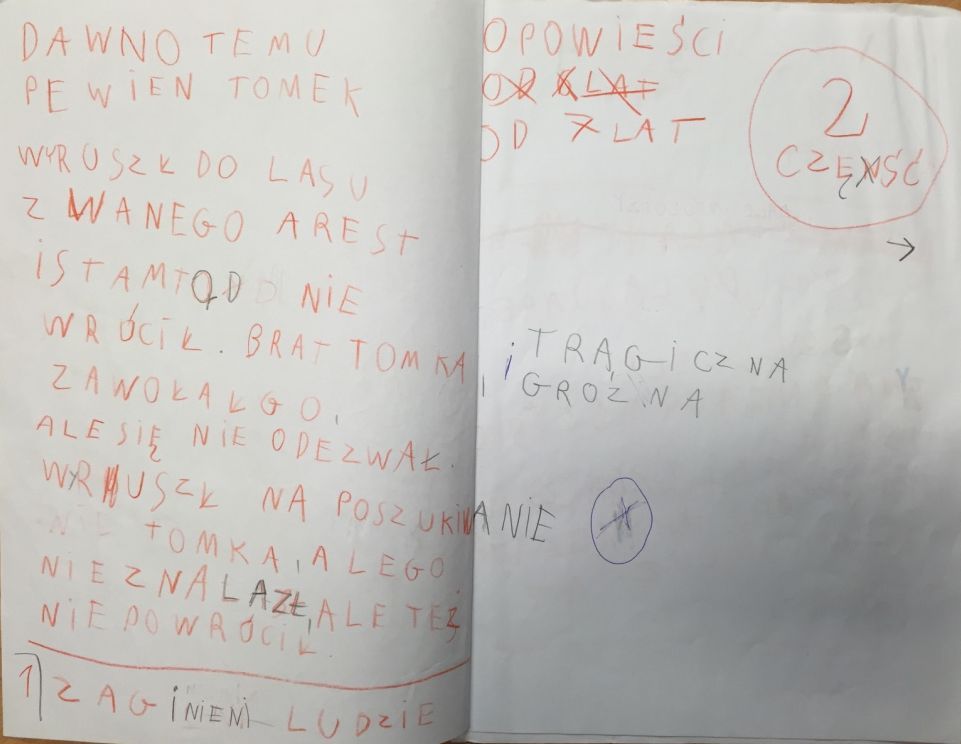 DAWNO TEMU
PEWIEN TOMEK
WYRUSZŁ DO LASU
ZWANEGO AREST
I STAMTĄD NIE
WRÓCIŁ. BRAT TOMKA
ZAWOŁAŁ GO,
ALE SIĘ NIE ODEZWAŁ.
WYRUSZŁ NA POSZUKIWANIE
TOMKA, ALE GO
NIE ZNALAZŁ, ALE TEŻ
NIE POWRÓCIŁ.
1 ZAGINIENI LUDZIE
OPOWIEŚCI
OD 7 LAT
2
CZĘŚĆ
→
i TRAGICZNA
i GROŹNA